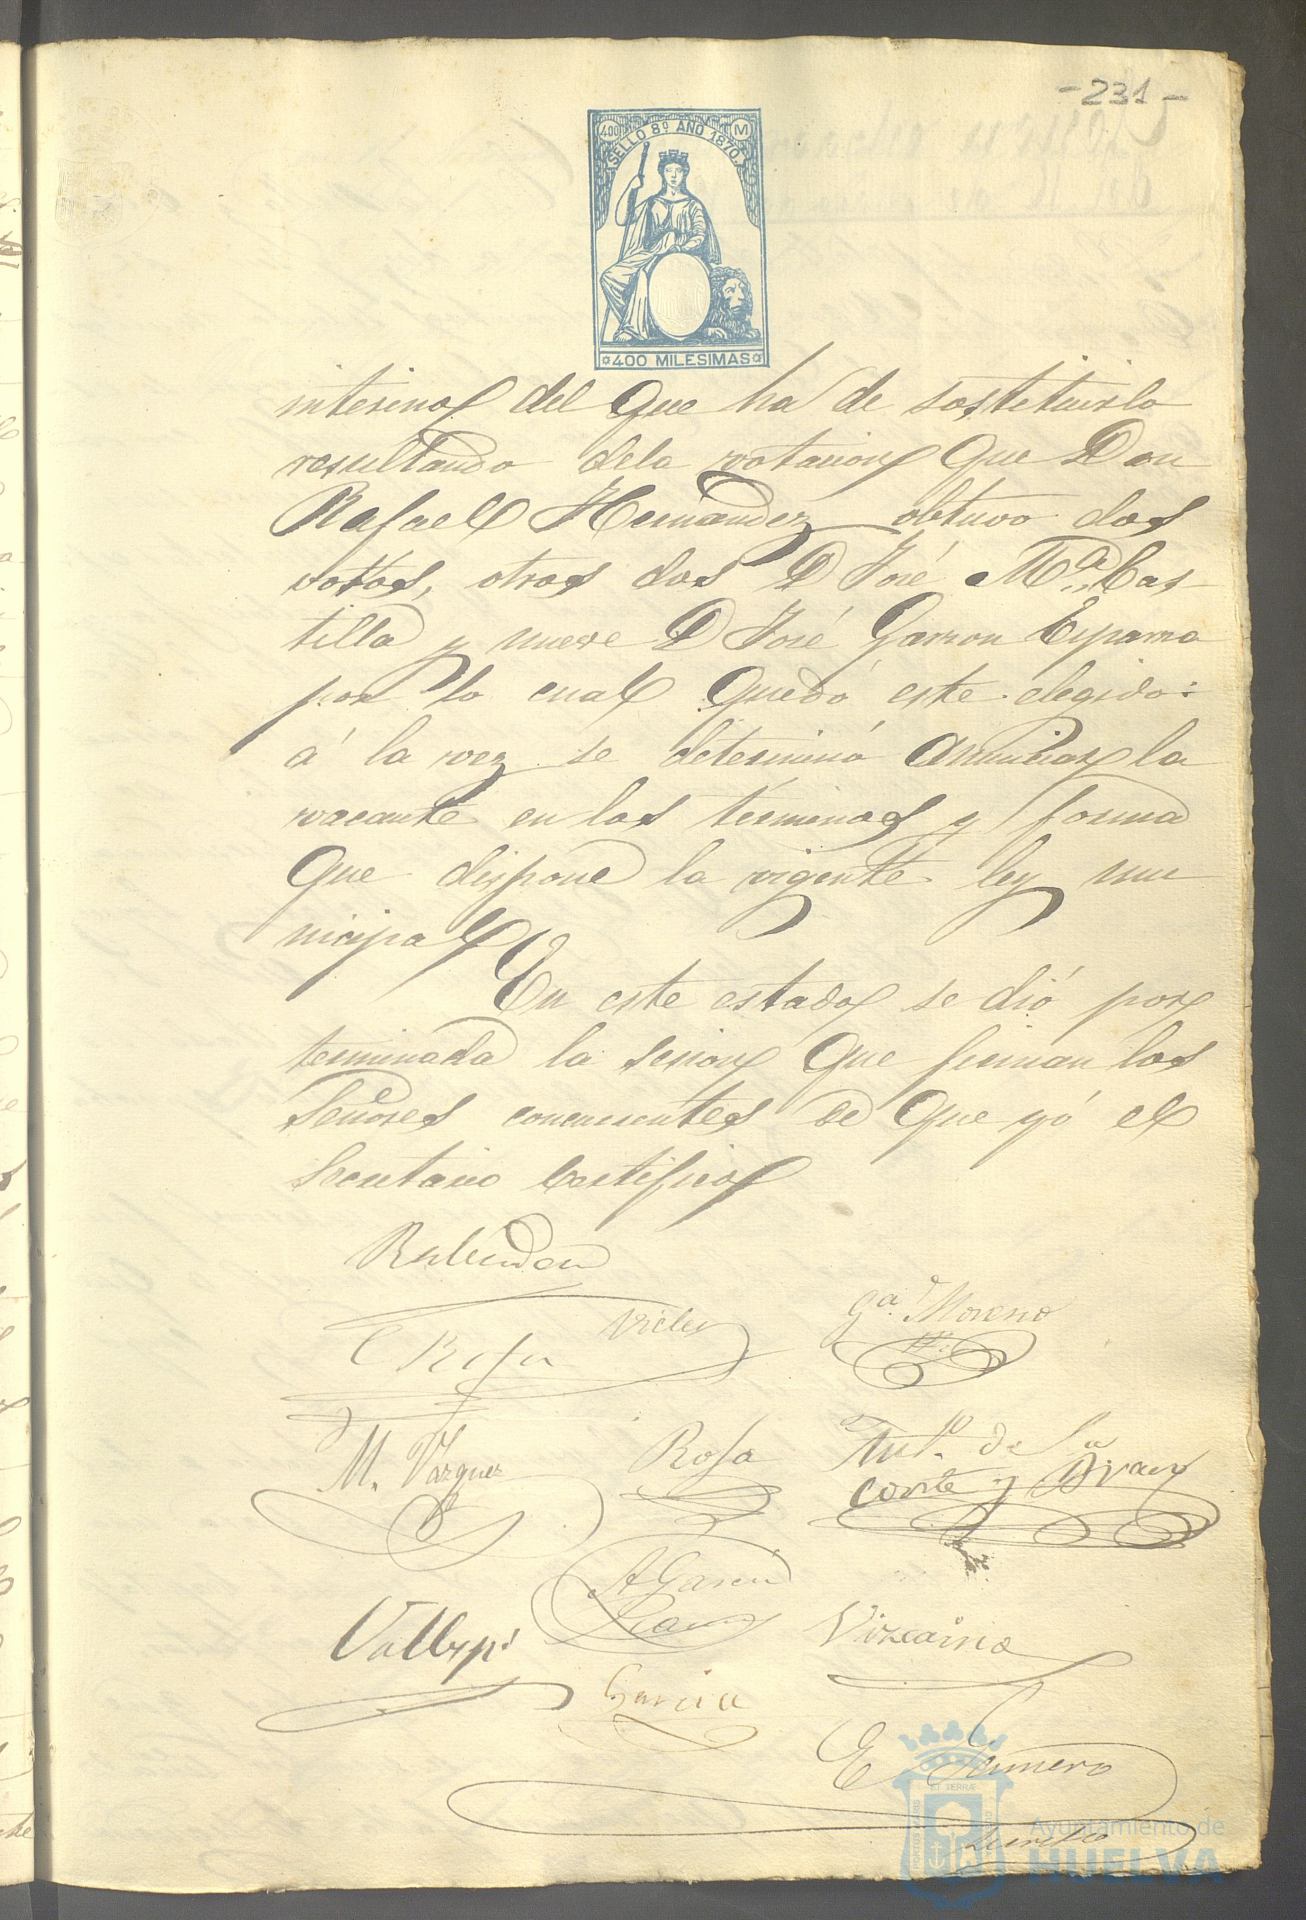 -231-
400 M
SELLO 8º AÑO 1870.
400 MILESIMAS
interino del que ha de sostituirlo
resultando dela votacion que Don
Rafael Hernandez obtuvo dos
votos, otros dos D José Mª Cas-
tilla y nueve D José Garzon Esparza
por lo cual quedó este elegido:
á la vez se determinó anunciar la
vacante en los términos y forma
que dispone la vigente ley mu
nicipal
En este estado se dió por
terminada la sesion que firman los
Señores concurrentes de que yó el
Secretario Certifico
Gª Moreno
Rofa
M. Vazquez
Rofa
Antº de la
Corte y
A García
Vizcaino
Garcia
E
Ayuntamiento de
HUELVA